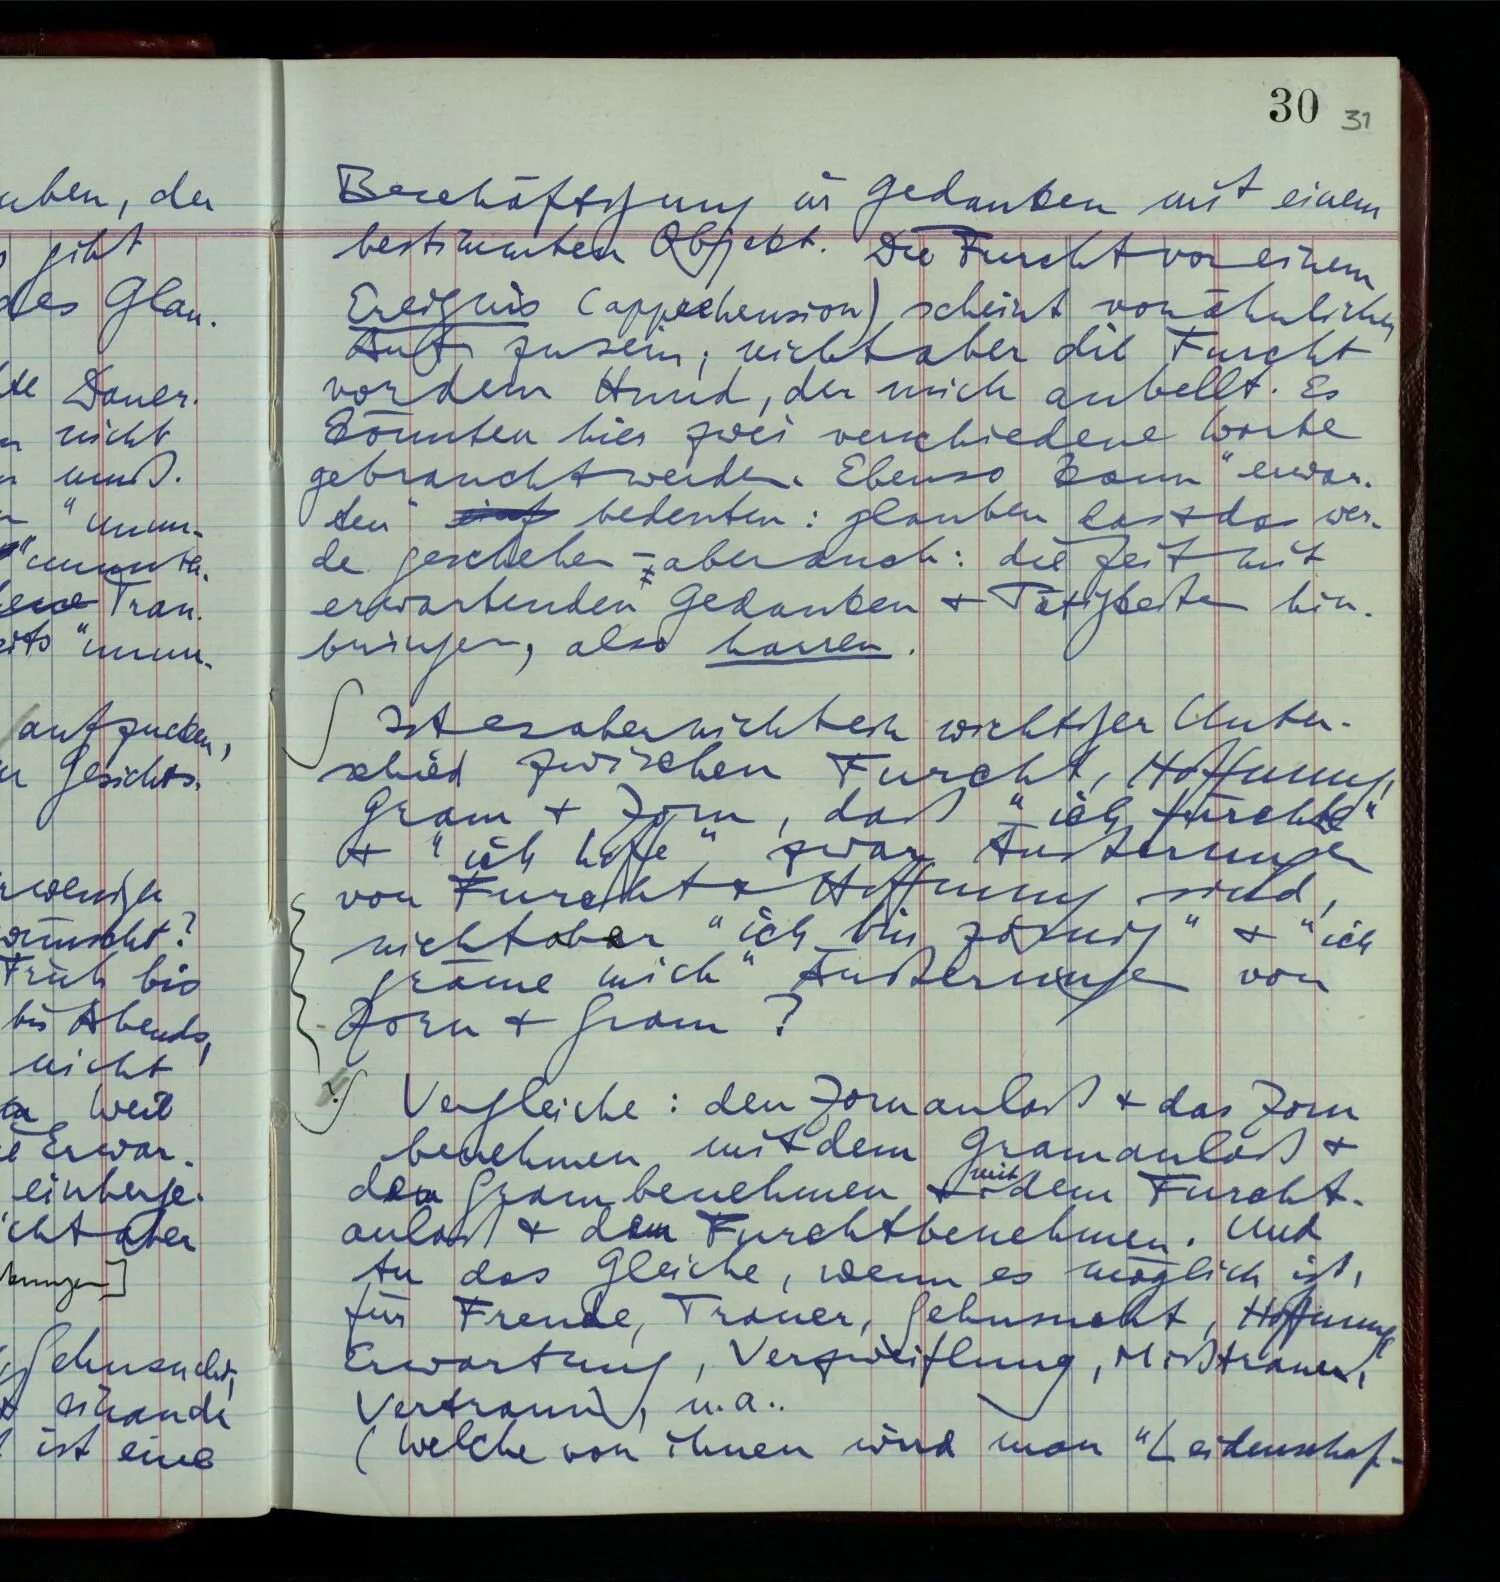 uben, der
gibt
des Glau-
Dauer.
nicht
muß.
"unun-
"ununte.
Trau.
"unun-
aufzucken,
Gesichts-
weniger
wünscht?
Früh bis
bis Abends,
nicht
Weil
Erwar-
einberge-
icht aber
kungen]
Sehnsucht,
einande
ist eine
30 31
Beschäftigung in Gedanken mit einem
bestimmten Objekt. Die Furcht vor einem
Ereignis (apprehension) scheint von ähnlicher
Art zu sein; nicht aber die Furcht
vor dem Hund, der mich anbellt. Es
könnten hier zwei verschiedene Worte
gebraucht werden. Ebenso kann "erwar-
ten" bedeuten: glauben das & das wer-
de geschehen – aber auch: die Zeit mit
erwartenden Gedanken & Tätigkeiten hin-
bringen, also harren.
Ist es aber nicht ein wichtiger Unter-
schied zwischen Furcht, Hoffnung,
Gram & Zorn, daß "ich fürchte"
& "ich hoffe" zwar Äußerungen
von Furcht & Hoffnung sind,
nicht aber "ich bin zornig" & "ich
gräme mich" Äußerungen von
Zorn & Gram?
Vergleiche: den Zornanlaß & das Zorn
benehmen mit dem Gramanlaß &
dem Grambenehmen & mit dem Furcht-
anlaß & dem Furchtbenehmen. Und
tu das Gleiche, wenn es möglich ist,
für Freude, Trauer, Sehnsucht, Hoffnung
Erwartung, Verzweiflung, Mißtrauen,
Vertrauen, u.a..
(Welche von ihnen wird man "Leidenschaf-